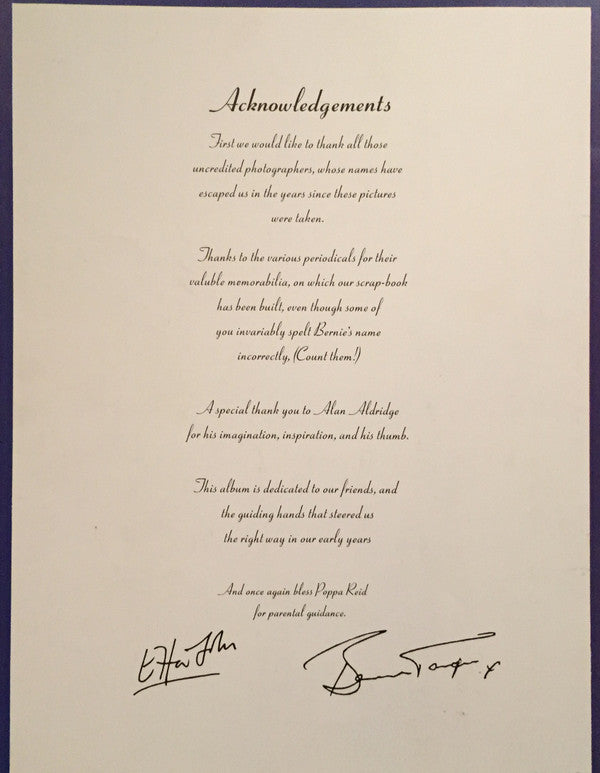 Acknowledgements
First we would like to thank all those
uncredited photographers, whose names have
escaped us in the years since these pictures
were taken.
Thanks to the various periodicals for their
valuble memorabilia, on which our scrap-book
has been built, even though some of
you invariably spelt Bernie's name
incorrectly, (Count them!)
A special thank you to Alan Aldridge
for his imagination, inspiration, and his thumb.
This album is dedicated to our friends, and
the guiding hands that steered us
the right way in our early years
And once again bless Poppa Reid
for parental guidance.
Elton John
Bernie Taupin x